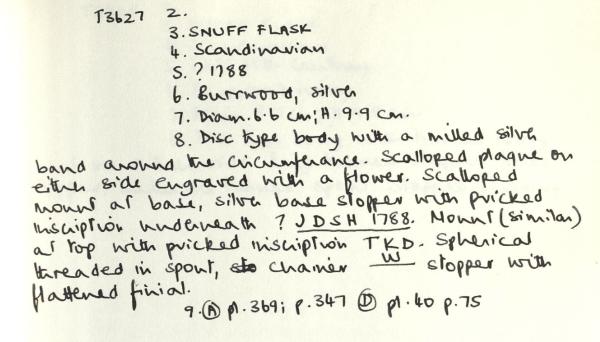 T3627 2.
3. SNUFF FLASK
4. Scandinavian
5. ? 1788
6. Burrwood, silver
7. Diam. 6.6 cm; H. 9.9 cm.
8. Disc type body with a milled silver
band around the circumference. Scalloped plaque on
either side engraved with a flower. Scalloped
mount at base, silver base stopper with pricked
inscription underneath ? JDSH 1788. Mount (similar)
at top with pricked inscription TKD. Spherical
W
threaded in spout, chained stopper with
flattened finial.
9. (A) pl. 369; p. 347 (D) pl. 40 p. 75